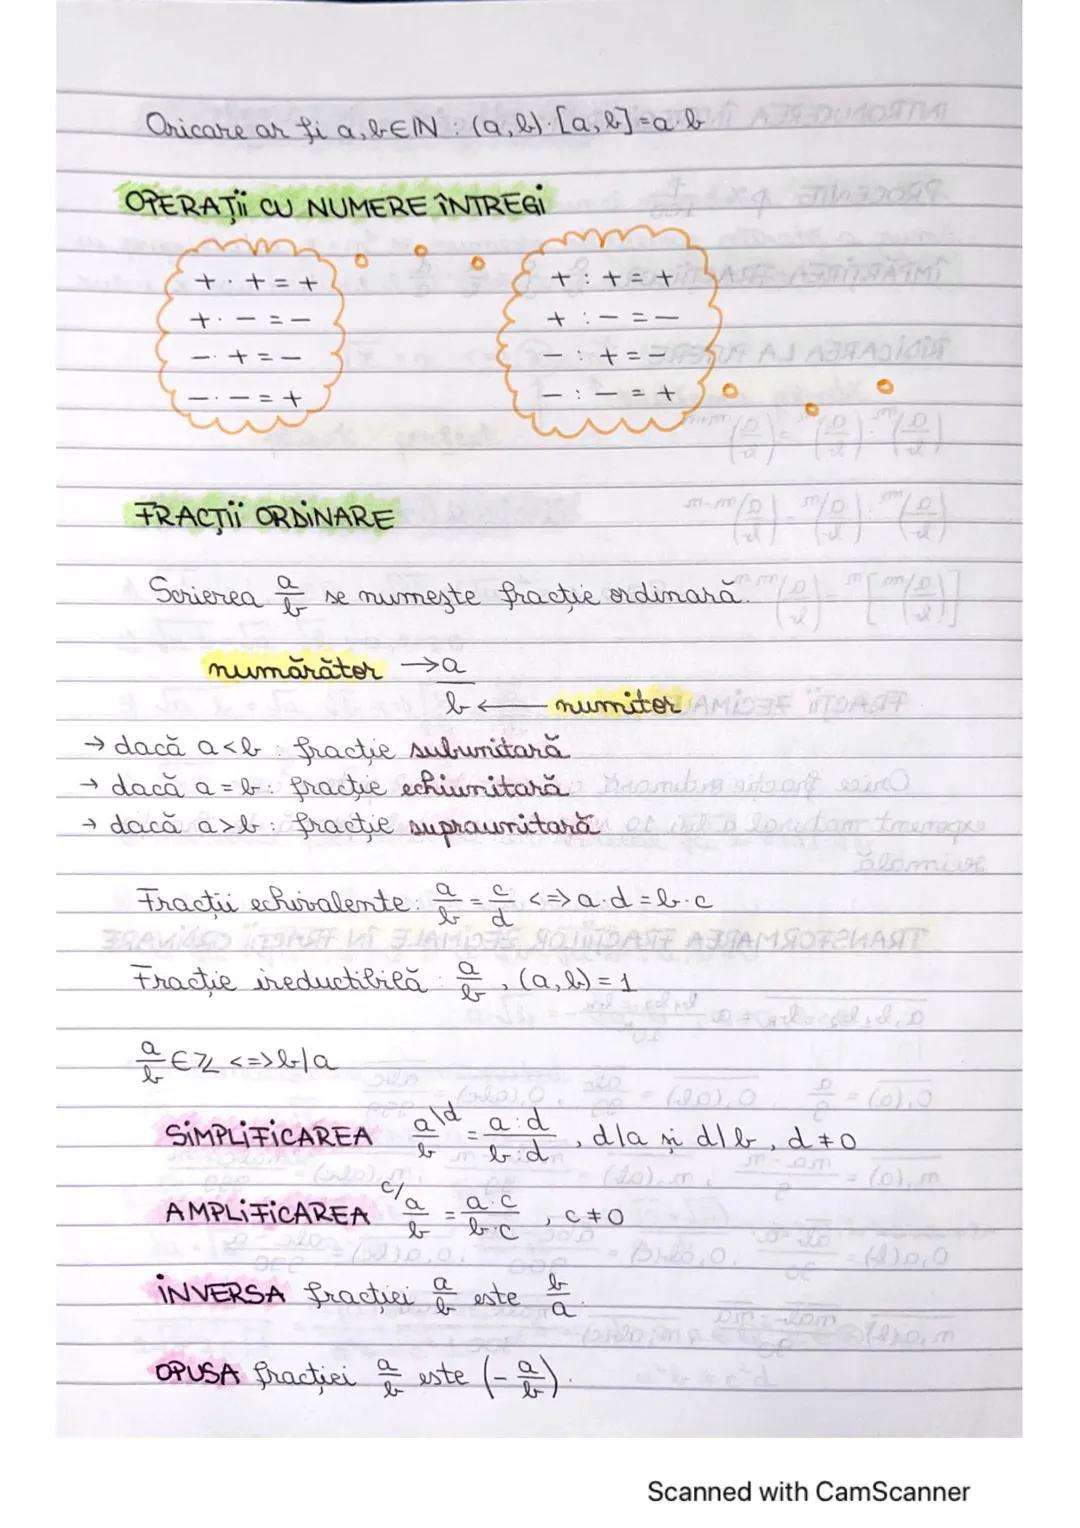 Oricare ar fi a, b∈ℕ : (a,b)·[a,b]=a·b
OPERAŢII CU NUMERE ÎNTREGI
+ · + = +
+ · − = −
− · + = −
− · − = +
+ : + = +
+ : − = −
− : + = −
− : − = +
FRACŢII ORDINARE
Scrierea a/b se numeşte fracţie ordinară.
numărător → a
b ← numitor
→ dacă a<b : fracţie subunitară
→ dacă a=b : fracţie echiunitară
→ dacă a>b : fracţie supraunitară
Fracţii echivalente: a/b = c/d <=> a·d = b·c
Fracţie ireductibilă : a/b , (a,b) = 1
a/b ∈ ℤ <=> b|a
SIMPLIFICAREA a/b \d = a:d/b:d , d|a şi d|b, d≠0
AMPLIFICAREA c/ a/b = a·c/b·c , c≠0
INVERSA fracţiei a/b este b/a.
OPUSA fracţiei a/b este (-a/b).
Scanned with CamScanner